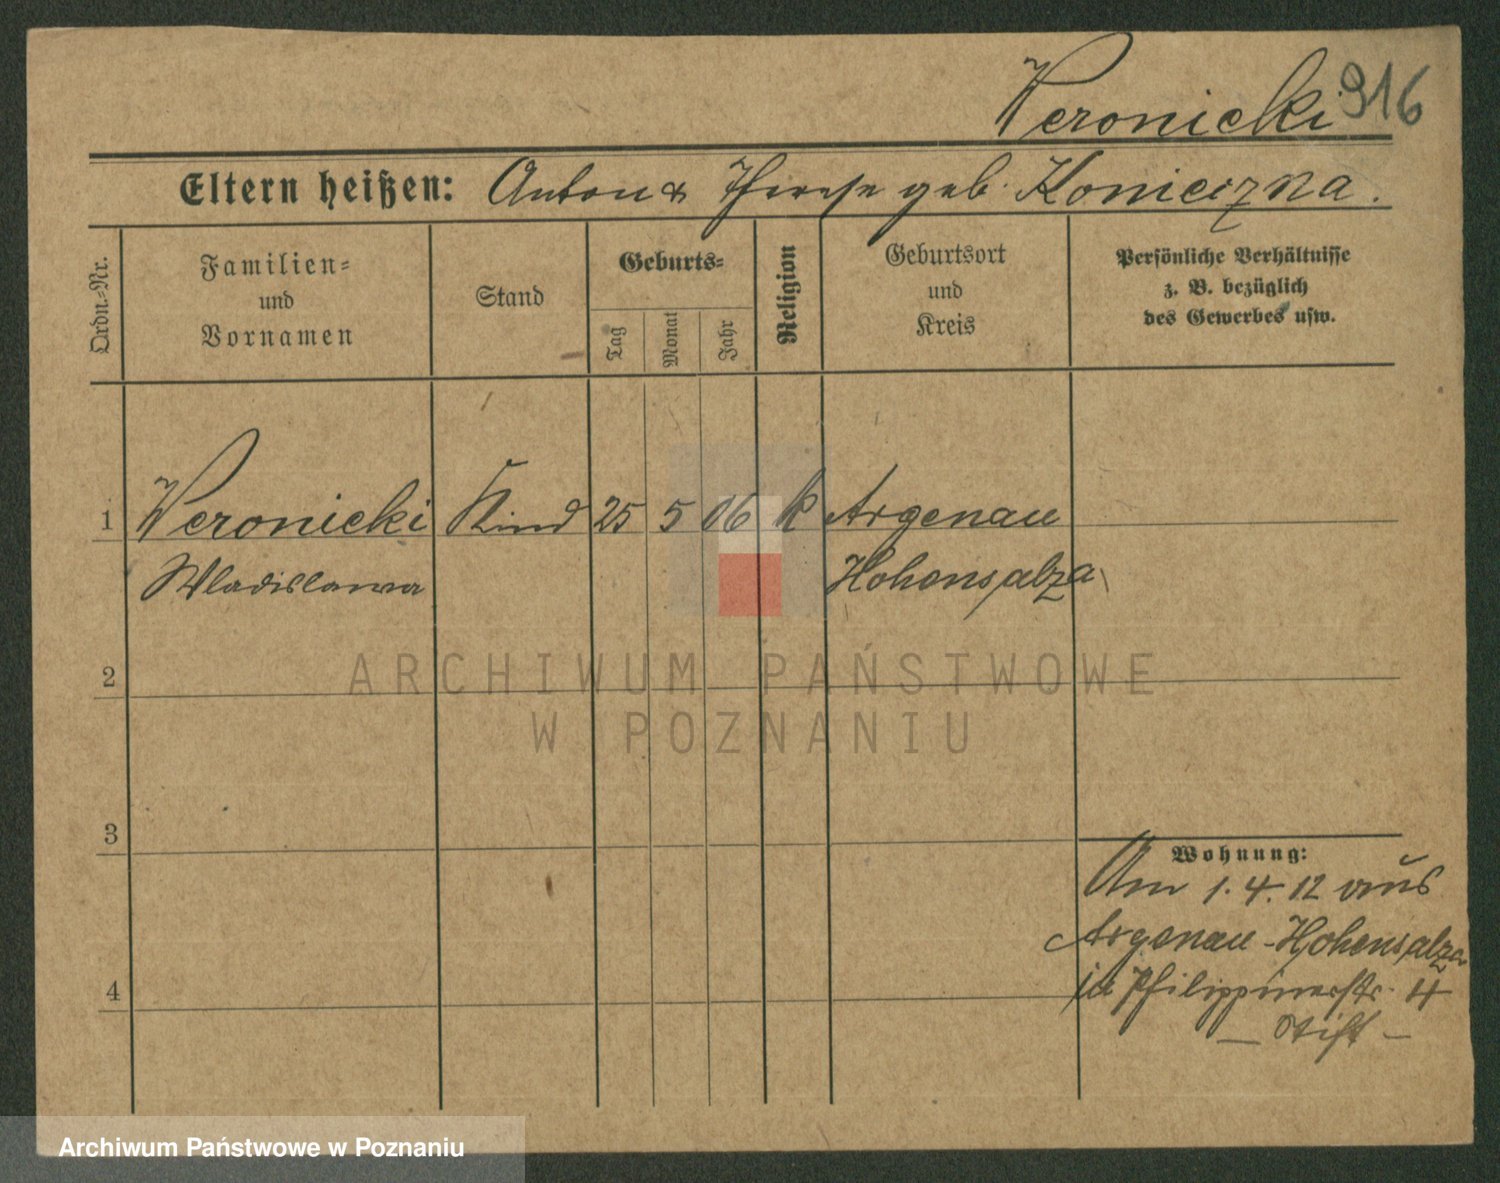 Weronicki 916
Eltern heißen: Anton & Therese geb. Konieczna.
Ordn.=Nr.
Familien=
und
Vornamen
Stand
Geburts=
Tag
Monat
Jahr
Religion
Geburtsort
und
Kreis
Persönliche Verhältnisse
z. B. bezüglich
des Gewerbes usw.
1 Weronicki Kind 25 5 06 k Argenau
Wladislawa Hohensalza
2
3
4
Wohnung:
Am 1. 4. 12 aus
Argenau - Hohensalza
in Philippinerstr. 4
— Stift —
ARCHIWUM PAŃSTWOWE
W POZNANIU
Archiwum Państwowe w Poznaniu